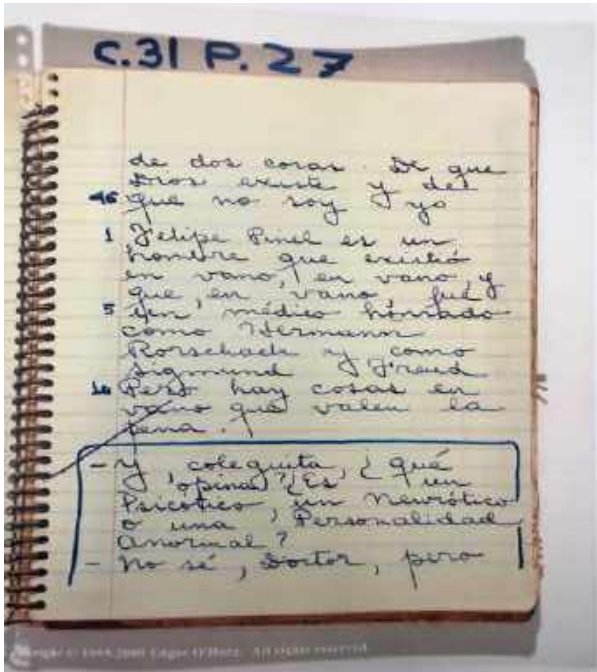 C.31 P.27
de dos cosas. De que
Dios existe y de
45 que no soy yo
1 Felipe Pinel es un
hombre que existió
en vano, en vano, y
que, en vano, fué
5 un médico honrado
como Hermann
Rorschach y como
Sigmund Freud
10 Pero hay cosas en
vano que valen la
pena.
- Y, coleguita, ¿qué
opina? ¿Es un
Psicótico, un Neurótico
o una Personalidad
Anormal?
- No sé, Doctor, pero
Copyright © 1999-2000 Edgar O'Hara. All rights reserved.